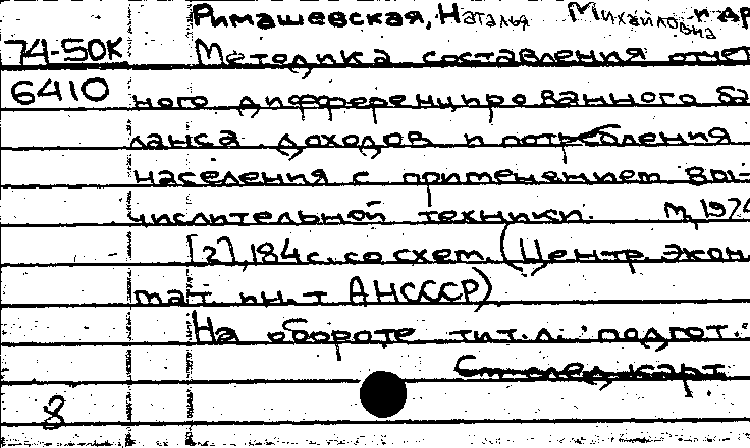 Римашевская, Наталья Михайловна и др
74-50К Методика составления отчет
6410 ного дифференцированного ба
ланса доходов и потребления
населения с применением вы-
числительной техники. М, 197
[2], 184 с. со схем. (Центр. экон.
мат. ин-т АН СССР)
На обороте тит. л.: подгот.:
См. след. карт.
8